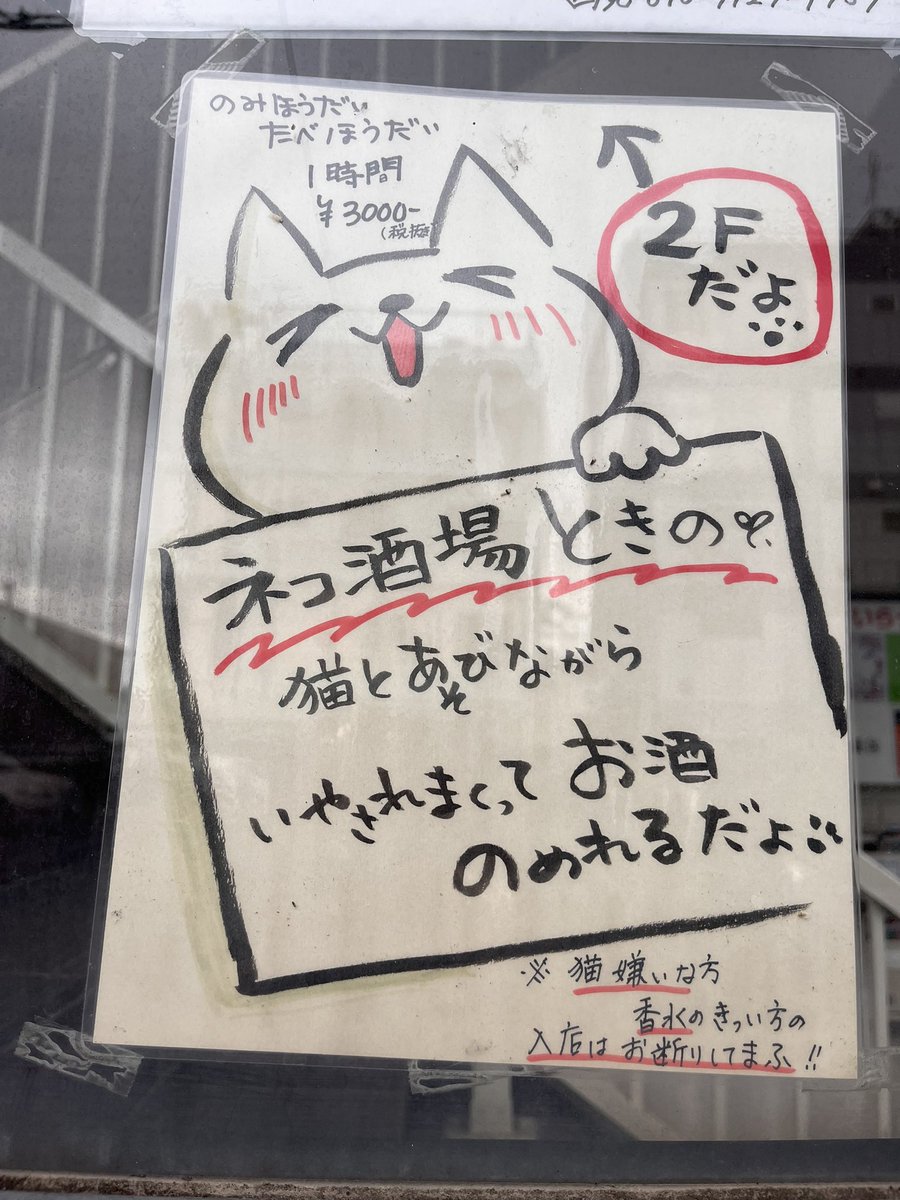 のみほうだい
たべほうだい
1時間
¥3000-
(税抜き)
2F
だよ
ネコ酒場ときの
猫とあそびながら
いやされまくってお酒
のめれるだよ
※猫嫌いな方
香水のきつい方の
入店はお断りしてまふ!!